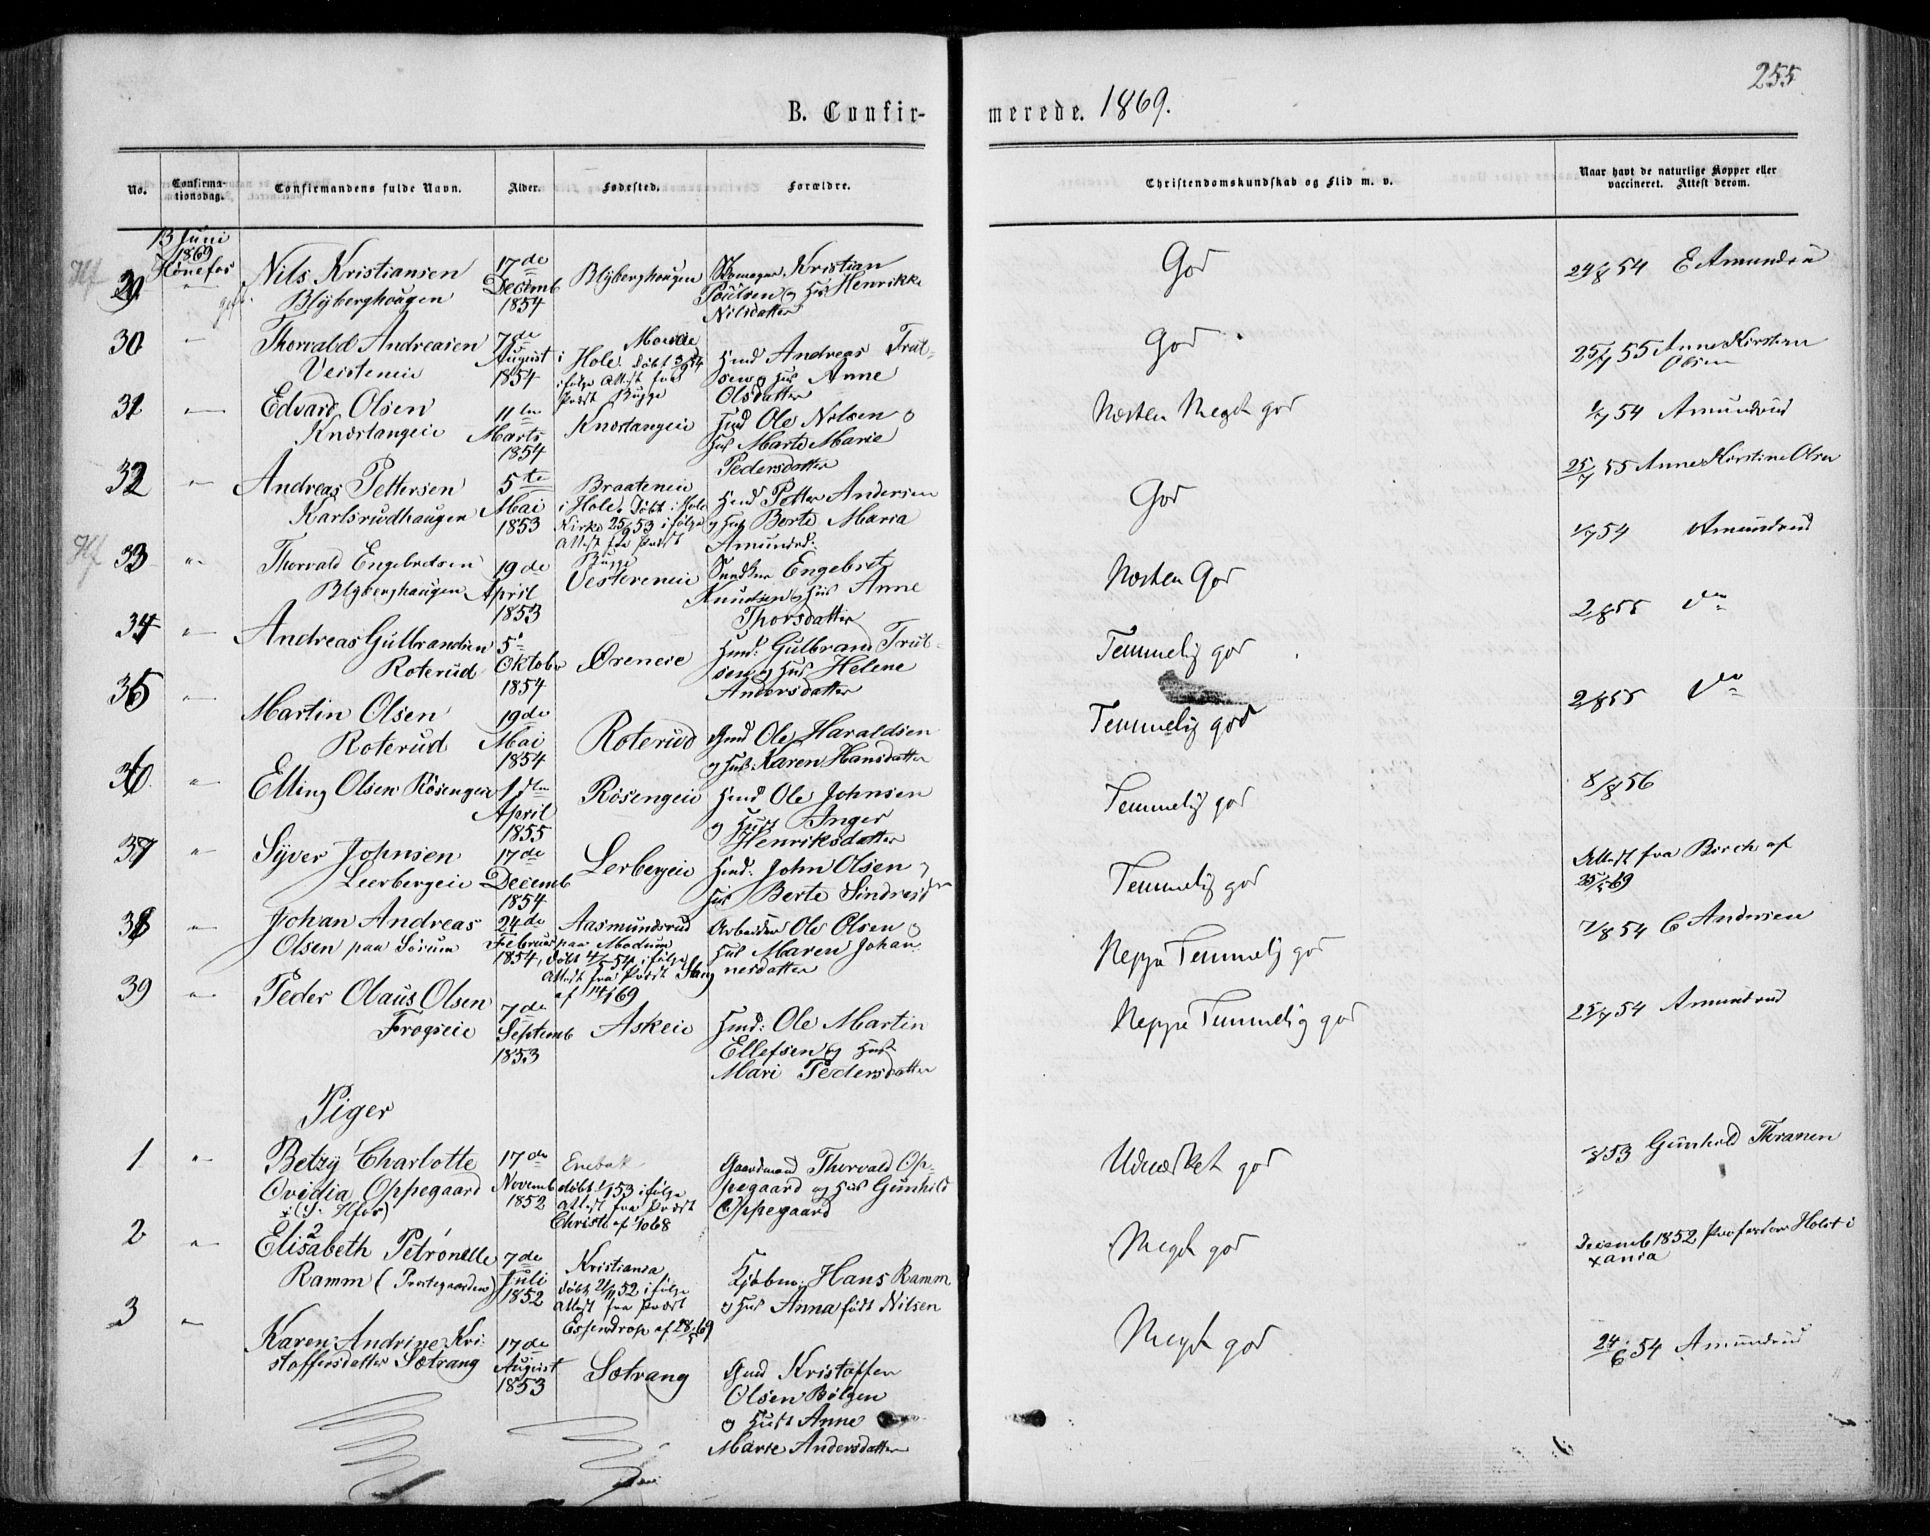 255
B. Confirmerede. 1869.
No. Confirmationsdag. Confirmandens fulde Navn. Alder. Fødested. Forældre. Christendomskundskab og Flid m. v. Naar havt de naturlige Kopper eller vaccineret. Attest derom.
13 Juni
1869
Hønefos
29 " Nils Kristiansen
Blyberghougen
17de
Decemb
1854
Blyberghougen
Skomager Kristian
Poulsen og Hus Henrikke
Nilsdatter
God
24/8 54 E Amundsen
30 " Thorvald Andreasen
Vesteneie
7de
August
1854
Moeie
i Hole. Døbt 3/9 54
ifølge Attest fra
Præst Bugge
Hmd Andreas Trulsen
og Hus Anne
Olsdatter
God
25/7 55 Anne Kirstine
Olsen
31 " Edvard Olsen
Knestangeie
11te
Marts
1854
Knestangeie
Hmd Ole Nilsen o
Hus Marte Marie
Pedersdatter
Næsten Meget god
1/7 54 Amundrud
32 " Andreas Pettersen
Karlsrudhaugen
5te
Mai
1853
Braateneie
i Hole. Døbt i Hole
Kirke 25/9 53 ifølge
Attest fra Præst
Bugge
Hmd Petter Andersen
og Hus Berte Maria
Amundsd:
God
25/7 55 Anne Kirstine Olsen
33 " Thorvald Engebretsen
Blyberghaugen
19de
April
1853
Vestereneie
Engebret
Knudsen og Hus Anne
Thorsdatter
Næsten God
1/7 54 Amundrud
34 " Andreas Gulbrandsen
Roterud
5te
Oktober
1854
Øreneie
Hmd: Gulbrand Trulsen
og Hus Helene
Andersdatter
Temmelig god
2/8 55 do
35 " Martin Olsen
Roterud
19de
Mai
1854
Roterud
Gmd Ole Haraldsen
og Hus Karen Hansdatter
Temmelig god
2/8 55 do
36 " Elling Olsen Rosengeie
1ste
April
1855
Rosengeie
Hmd Ole Johnsen
og Hust Inger
Henriksdatter
Temmelig god
8/8 56
37 " Syver Johnsen
Leerbergeie
17de
Decemb
1854
Lerbergeie
Hmd: John Olsen o
Hus Berte Sindresd
Temmelig god
Attest fra Birch af
25/5 69
38 " Johan Andreas
Olsen paa Sørum
24de
Februar
1854
Aasmundrud
paa Modum
døbt 4/5 54, ifølge
Attest fra Præst Stang
af 14/1 69
Arbeider Ole Olsen o
Hus Maren Johannesdatter
Neppe Temmelig god
7/8 54 C Andersen
39 " Peder Olaus Olsen
Frogseie
7de
Septemb
1853
Askeie
Hmd: Ole Martin
Ellefsen og Hust
Mari Pedersdatter
Neppe Temmelig god
25/7 54 Amundrud
Piger
1 " Betzy Charlotte
Ovidia Oppegaard
17de
Novemb
1852
Enebak
døbt 1/1 53 ifølge
Attest fra Præst
Christi af 1/10 68
Gaardmand Thorvald Oppegaard
og Hus Gunhild
Oppegaard
Udmærket god
53 Gunhild Thranen
2 " Elisabeth Petronelle
Ramm (Præstegaarden)
7de
Juli
1852
Kristiania
døbt 21/11 52 ifølge
Attest fra Præst
Essendrop af 28/5 69
Kjøbm: Hans Ramm
o Hus Anna født Nilsen
Meget god
Decemb 1852 Professor Holst i
Xania
3 " Karen Andrine Kristoffersdatter
Sætrang
17de
August
1853
Sætrang
Gmd Kristoffer
Olsen Bølgen
o Hust Anne
Marie Andersdatter
Meget god
24/6 54 Amundrud